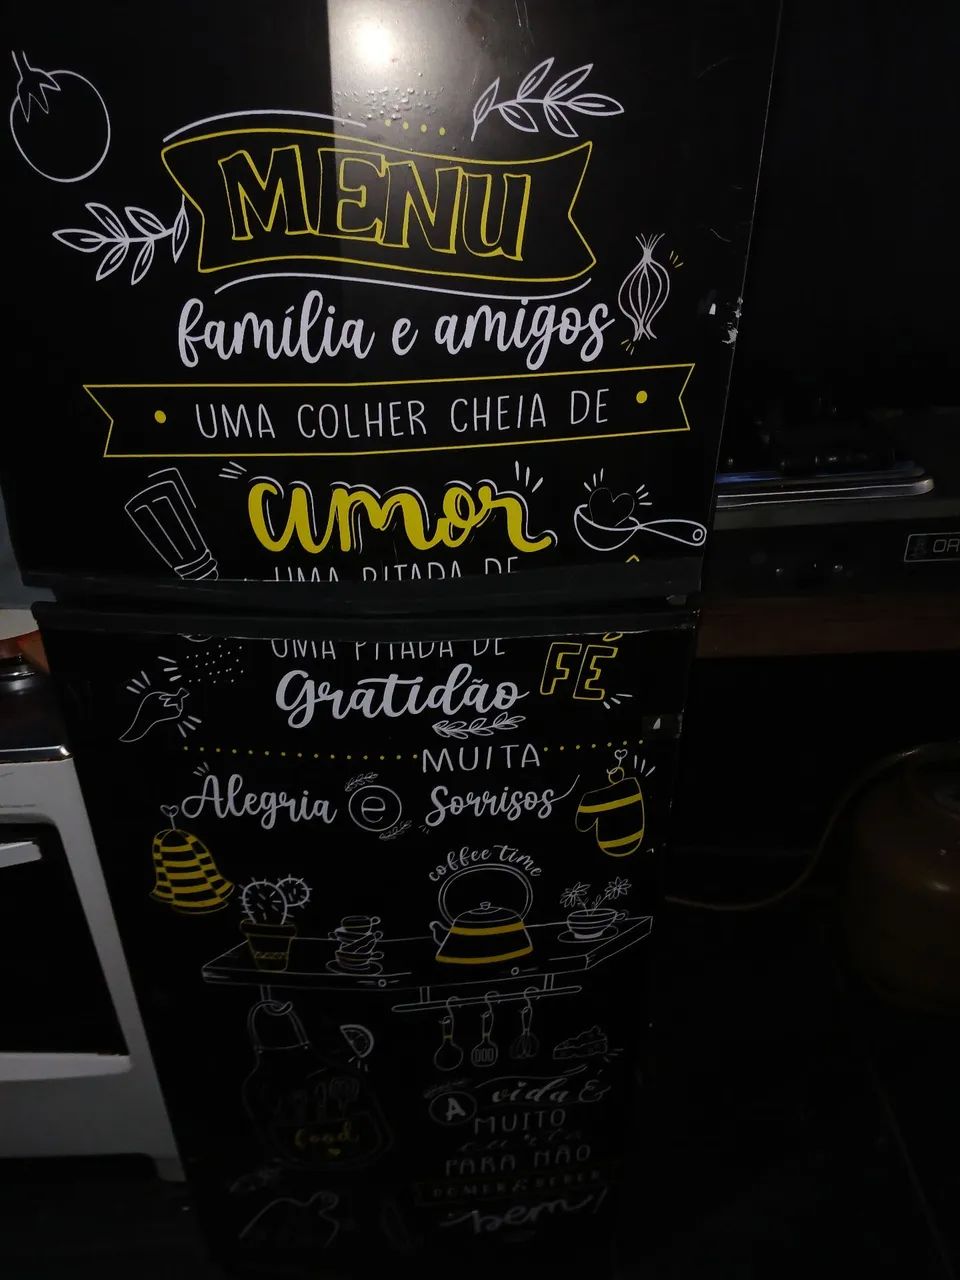 MENU
família e amigos
UMA COLHER CHEIA DE
amor
UMA PITADA DE
UMA PITADA DE
FÉ
Gratidão
MUITA
Alegria e Sorrisos
coffee time
food
A vida é
MUITO
PARA NÃO
COMER & BEBER
bem